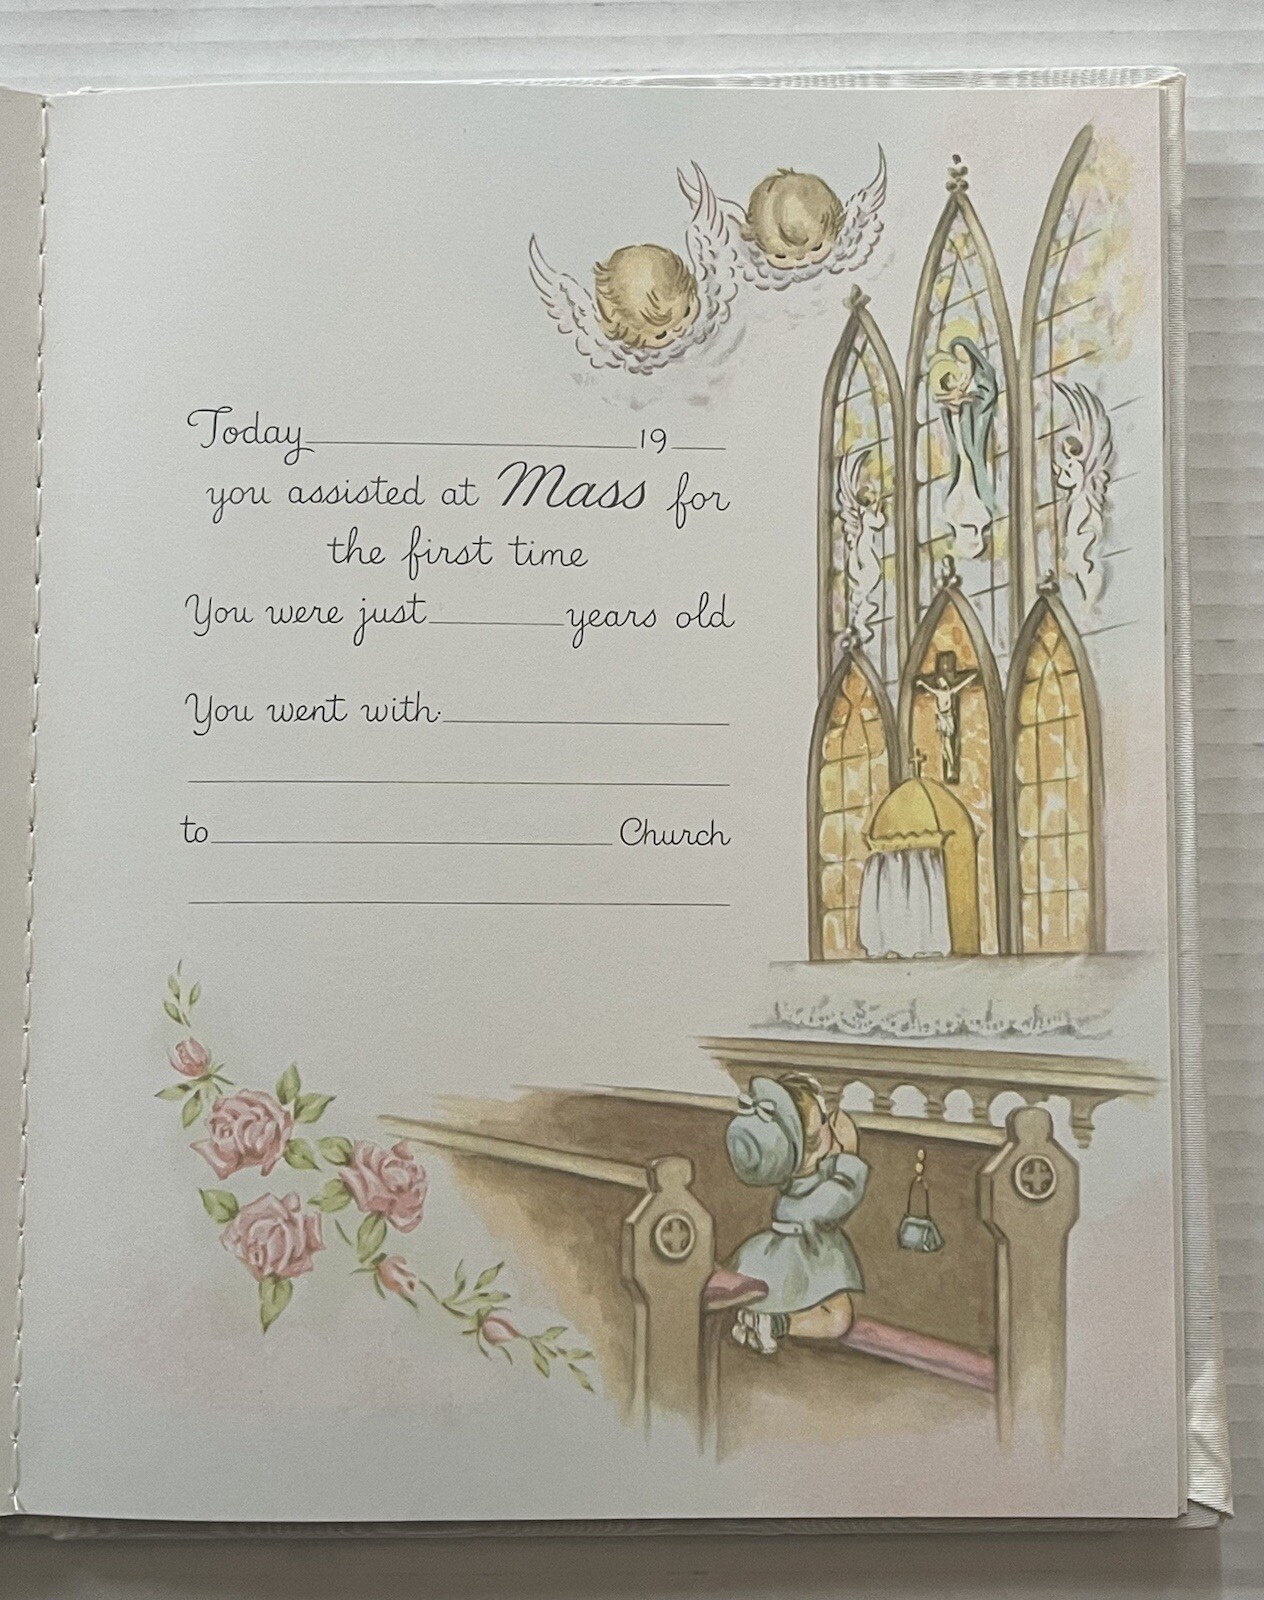 Today 19
you assisted at Mass for
the first time
You were just years old
You went with
to Church